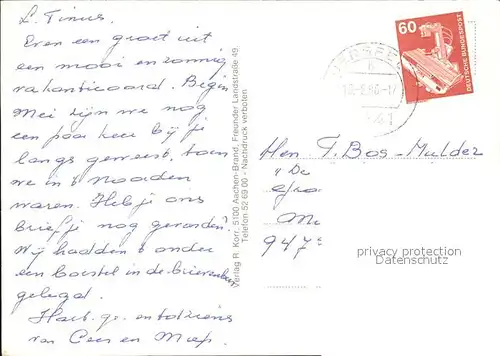 L. Tinus.
Even een groet uit
een mooi en zonnig
vakantieoord. Begin
Mei zijn we nog
een paar keer bij je
langs geweest, toen
we in 't Noorden
waren. Heb je ons
briefje nog gevonden?
Wij hadden 't onder
een borstel in de brievenbus
gelegd.
Hart. gr. en tot ziens
van Cees en Miep.
Verlag R. Korr, 5100 Aachen-Brand, Freunder Landstraße 49
Telefon 52 69 00 - Nachdruck verboten
60
DEUTSCHE BUNDESPOST
41
Hen T. Bos-Mulder
"De
947
privacy protection
Datenschutz